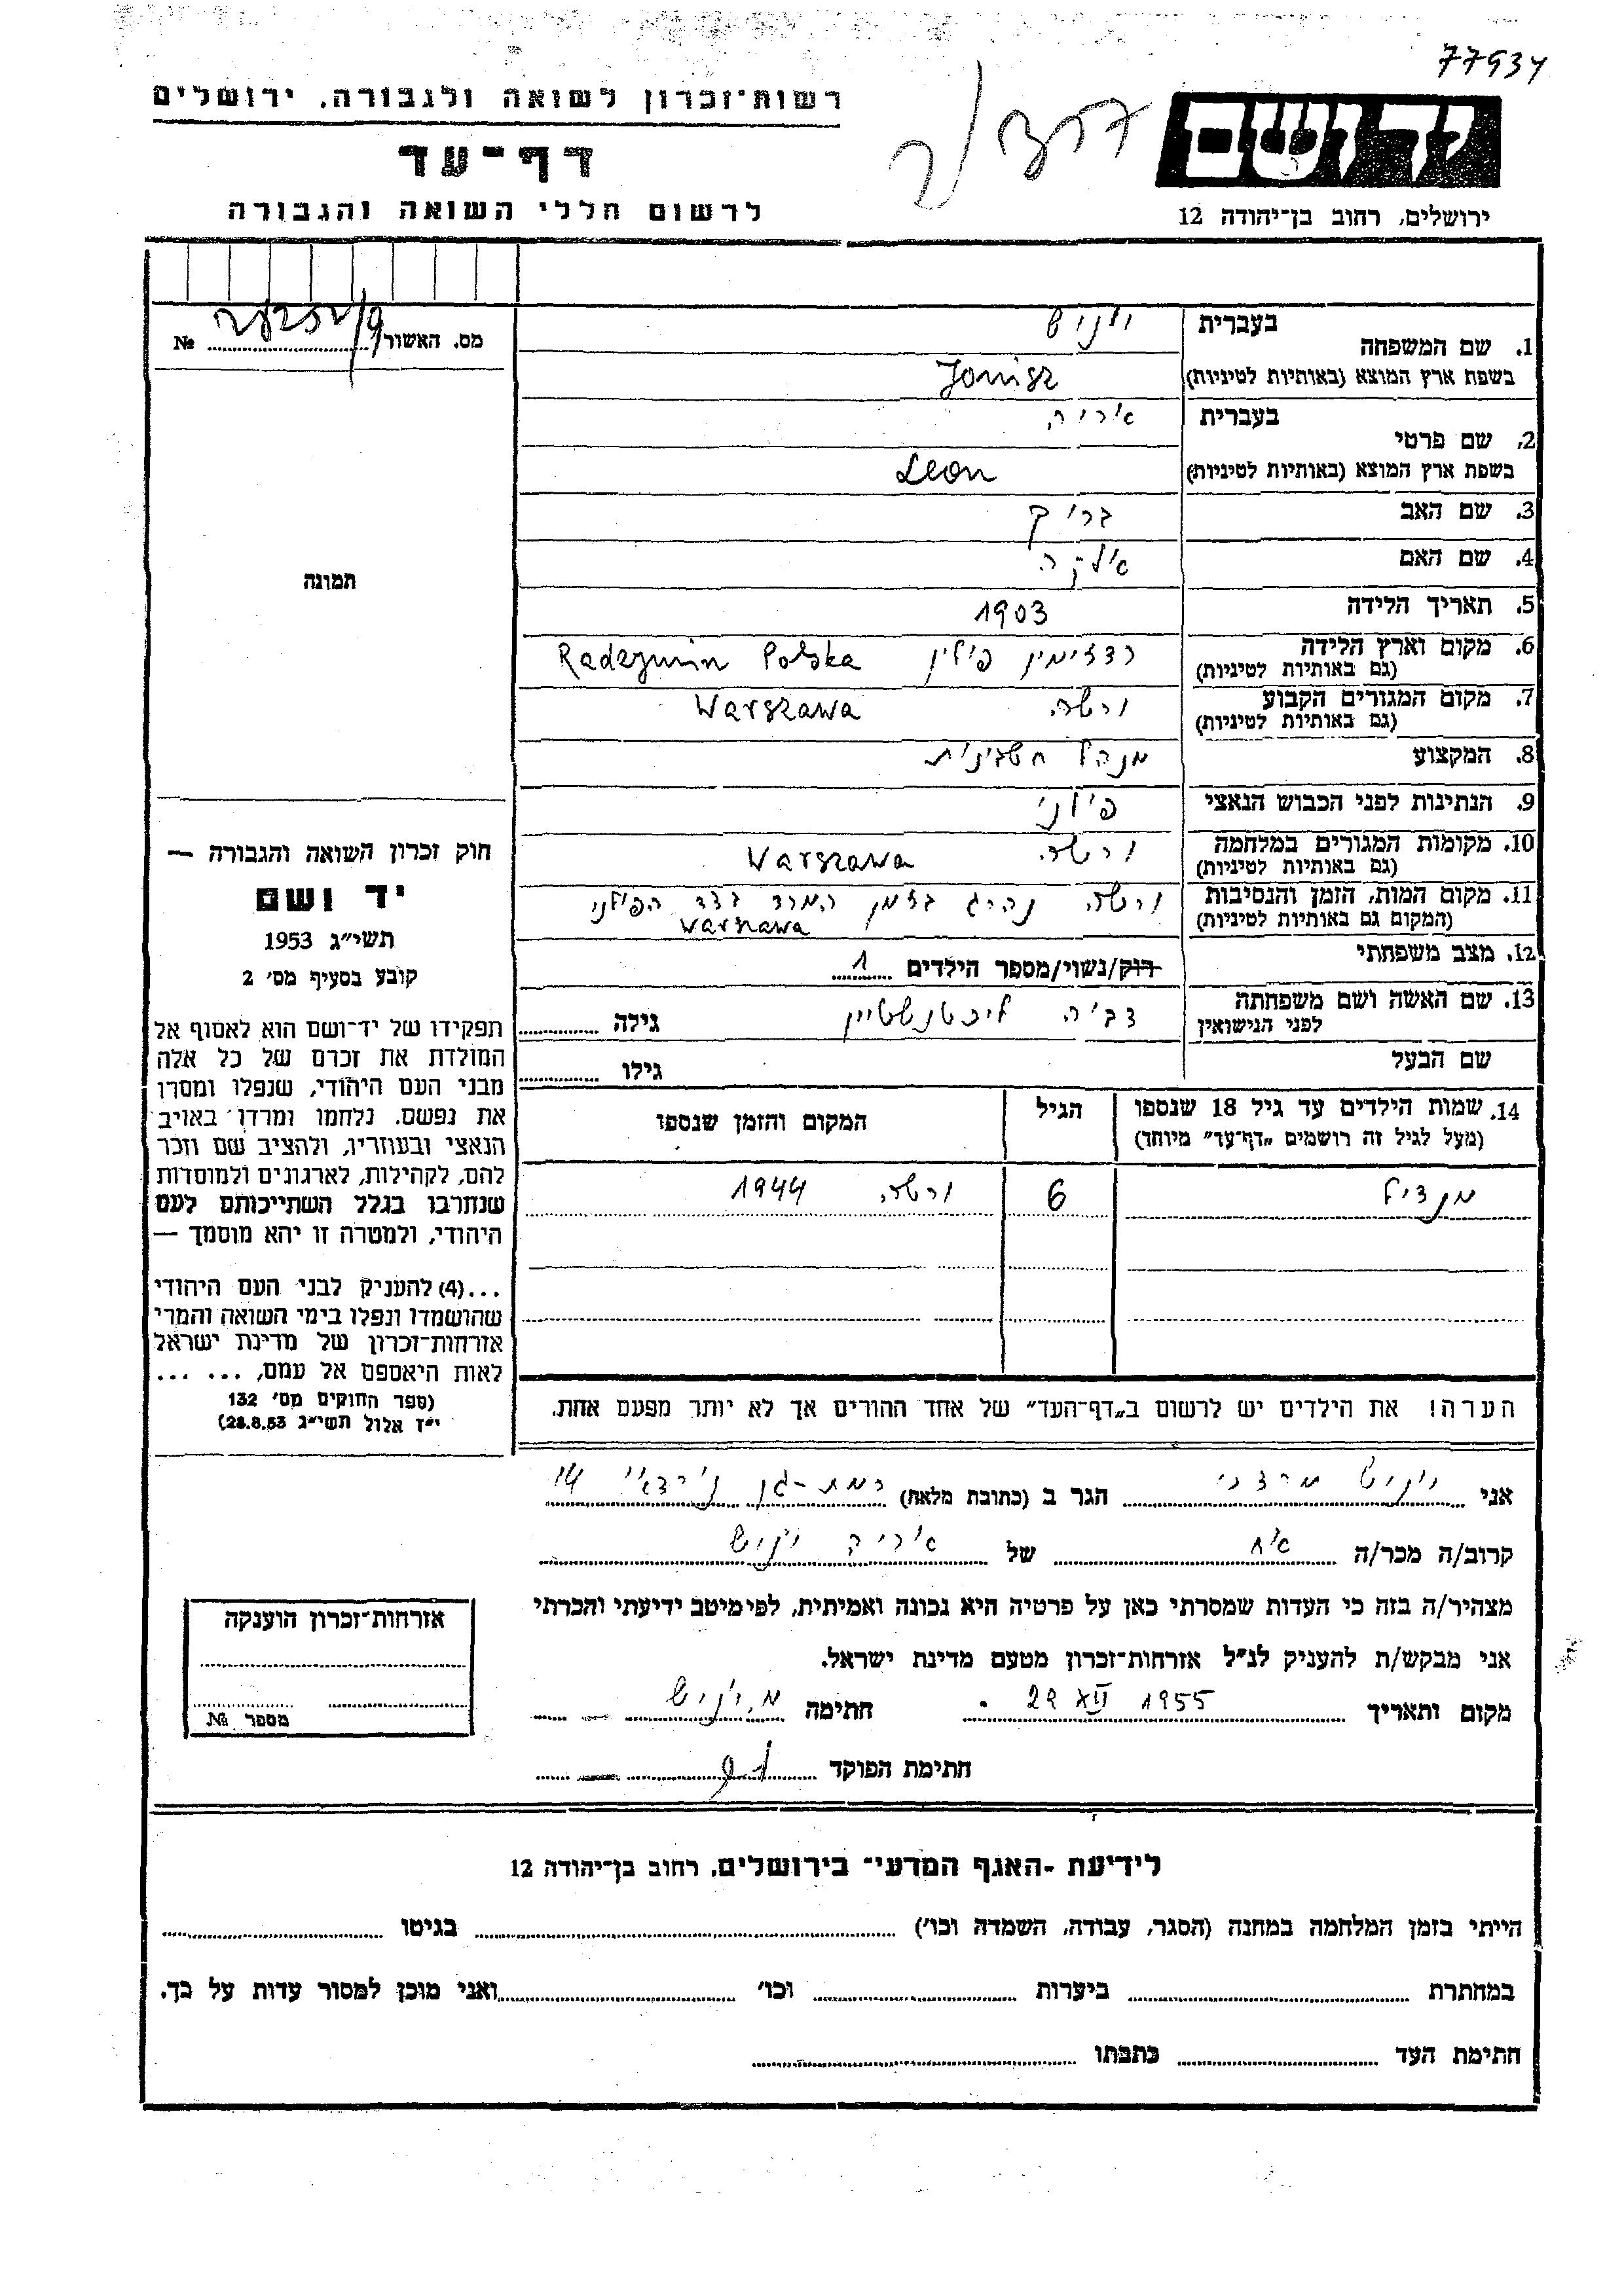 77934
רשות־זכרון לשואה ולגבורה, ירושלים
דף־עד
לרשום חללי השואה והגבורה
יד ושם
ירושלים, רחוב בן־יהודה 12
מס. האשור № 
בעברית
1. שם המשפחה
יוניש
בשפת ארץ המוצא (באותיות לטיניות) Jonisz
בעברית
2. שם פרטי
אריה
בשפת ארץ המוצא (באותיות לטיניות) Leon
3. שם האב ברוך
4. שם האם
5. תאריך הלידה 1903
6. מקום וארץ הלידה רדזימין פולין Radzymin Polska
(גם באותיות לטיניות)
7. מקום המגורים הקבוע ורשה Warszawa
(גם באותיות לטיניות)
8. המקצוע מנהל חשבונות
9. הנתינות לפני הכבוש הנאצי פולני
10. מקומות המגורים במלחמה ורשה Warszawa
(גם באותיות לטיניות)
11. מקום המות, הזמן והנסיבות ורשה נהרג בזמן המרד בצד הפולני
(המקום גם באותיות לטיניות) Warszawa
12. מצב משפחתי רוק/נשוי/מספר הילדים 1
13. שם האשה ושם משפחתה
לפני הנישואין
ליכטנשטיין גילה
שם הבעל גילו
14. שמות הילדים עד גיל 18 שנספו
(מעל לגיל זה רושמים "דף־עד" מיוחד)
הגיל
המקום והזמן שנספו
מנדיל 6 ורשה 1944
הערה! את הילדים יש לרשום ב"דף־העד" של אחד ההורים אך לא יותר מפעם אחת.
תמונה
חוק זכרון השואה והגבורה —
יד ושם
תשי״ג 1953
קובע בסעיף מס׳ 2
תפקידו של יד־ושם הוא לאסוף אל
המולדת את זכרם של כל אלה
מבני העם היהודי, שנפלו ומסרו
את נפשם, נלחמו ומרדו באויב
הנאצי ובעוזריו, ולהציב שם וזכר
להם, לקהילות, לארגונים ולמוסדות
שנחרבו בגלל השתייכותם לעם
היהודי, ולמטרה זו יהא מוסמך —
...(4) להעניק לבני העם היהודי
שהושמדו ונפלו בימי השואה והמרי
אזרחות־זכרון של מדינת ישראל
לאות היאספם אל עמם, ... ...
(ספר החוקים מס׳ 132
י״ז אלול תשי״ג 28.8.53)
אני יוניש מרדכי הגר ב (כתובת מלאה) רמת-גן 14
קרוב/ה מכר/ה אח של אריה יוניש
מצהיר/ה בזה כי העדות שמסרתי כאן על פרטיה היא נכונה ואמיתית, לפי מיטב ידיעתי והכרתי
אני מבקש/ת להעניק לנ״ל אזרחות־זכרון מטעם מדינת ישראל.
מקום ותאריך 29 XII 1955 חתימה מ. יוניש
חתימת הפוקד
אזרחות־זכרון הוענקה
מספר №
לידיעת ־האגף המדעי־ בירושלים, רחוב בן־יהודה 12
הייתי בזמן המלחמה במחנה (הסגר, עבודה, השמדה וכו׳) בגיטו
במחתרת ביערות וכו׳ ואני מוכן למסור עדות על כך.
חתימת העד כתבתו